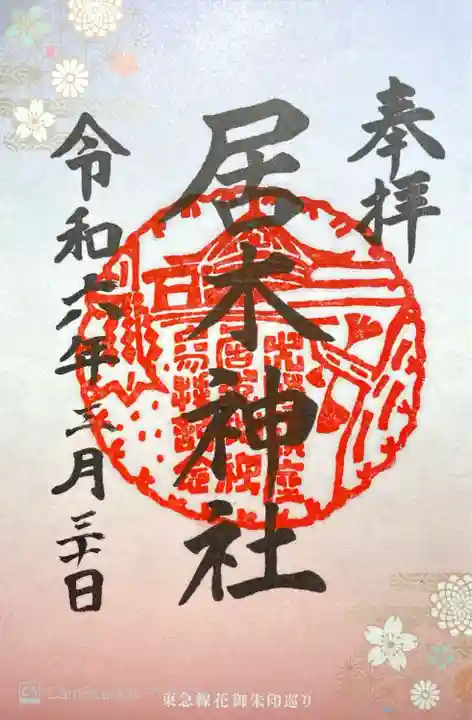 奉拝
居木神社
令和六年三月三十日
東急線花御朱印巡り
CamScanner